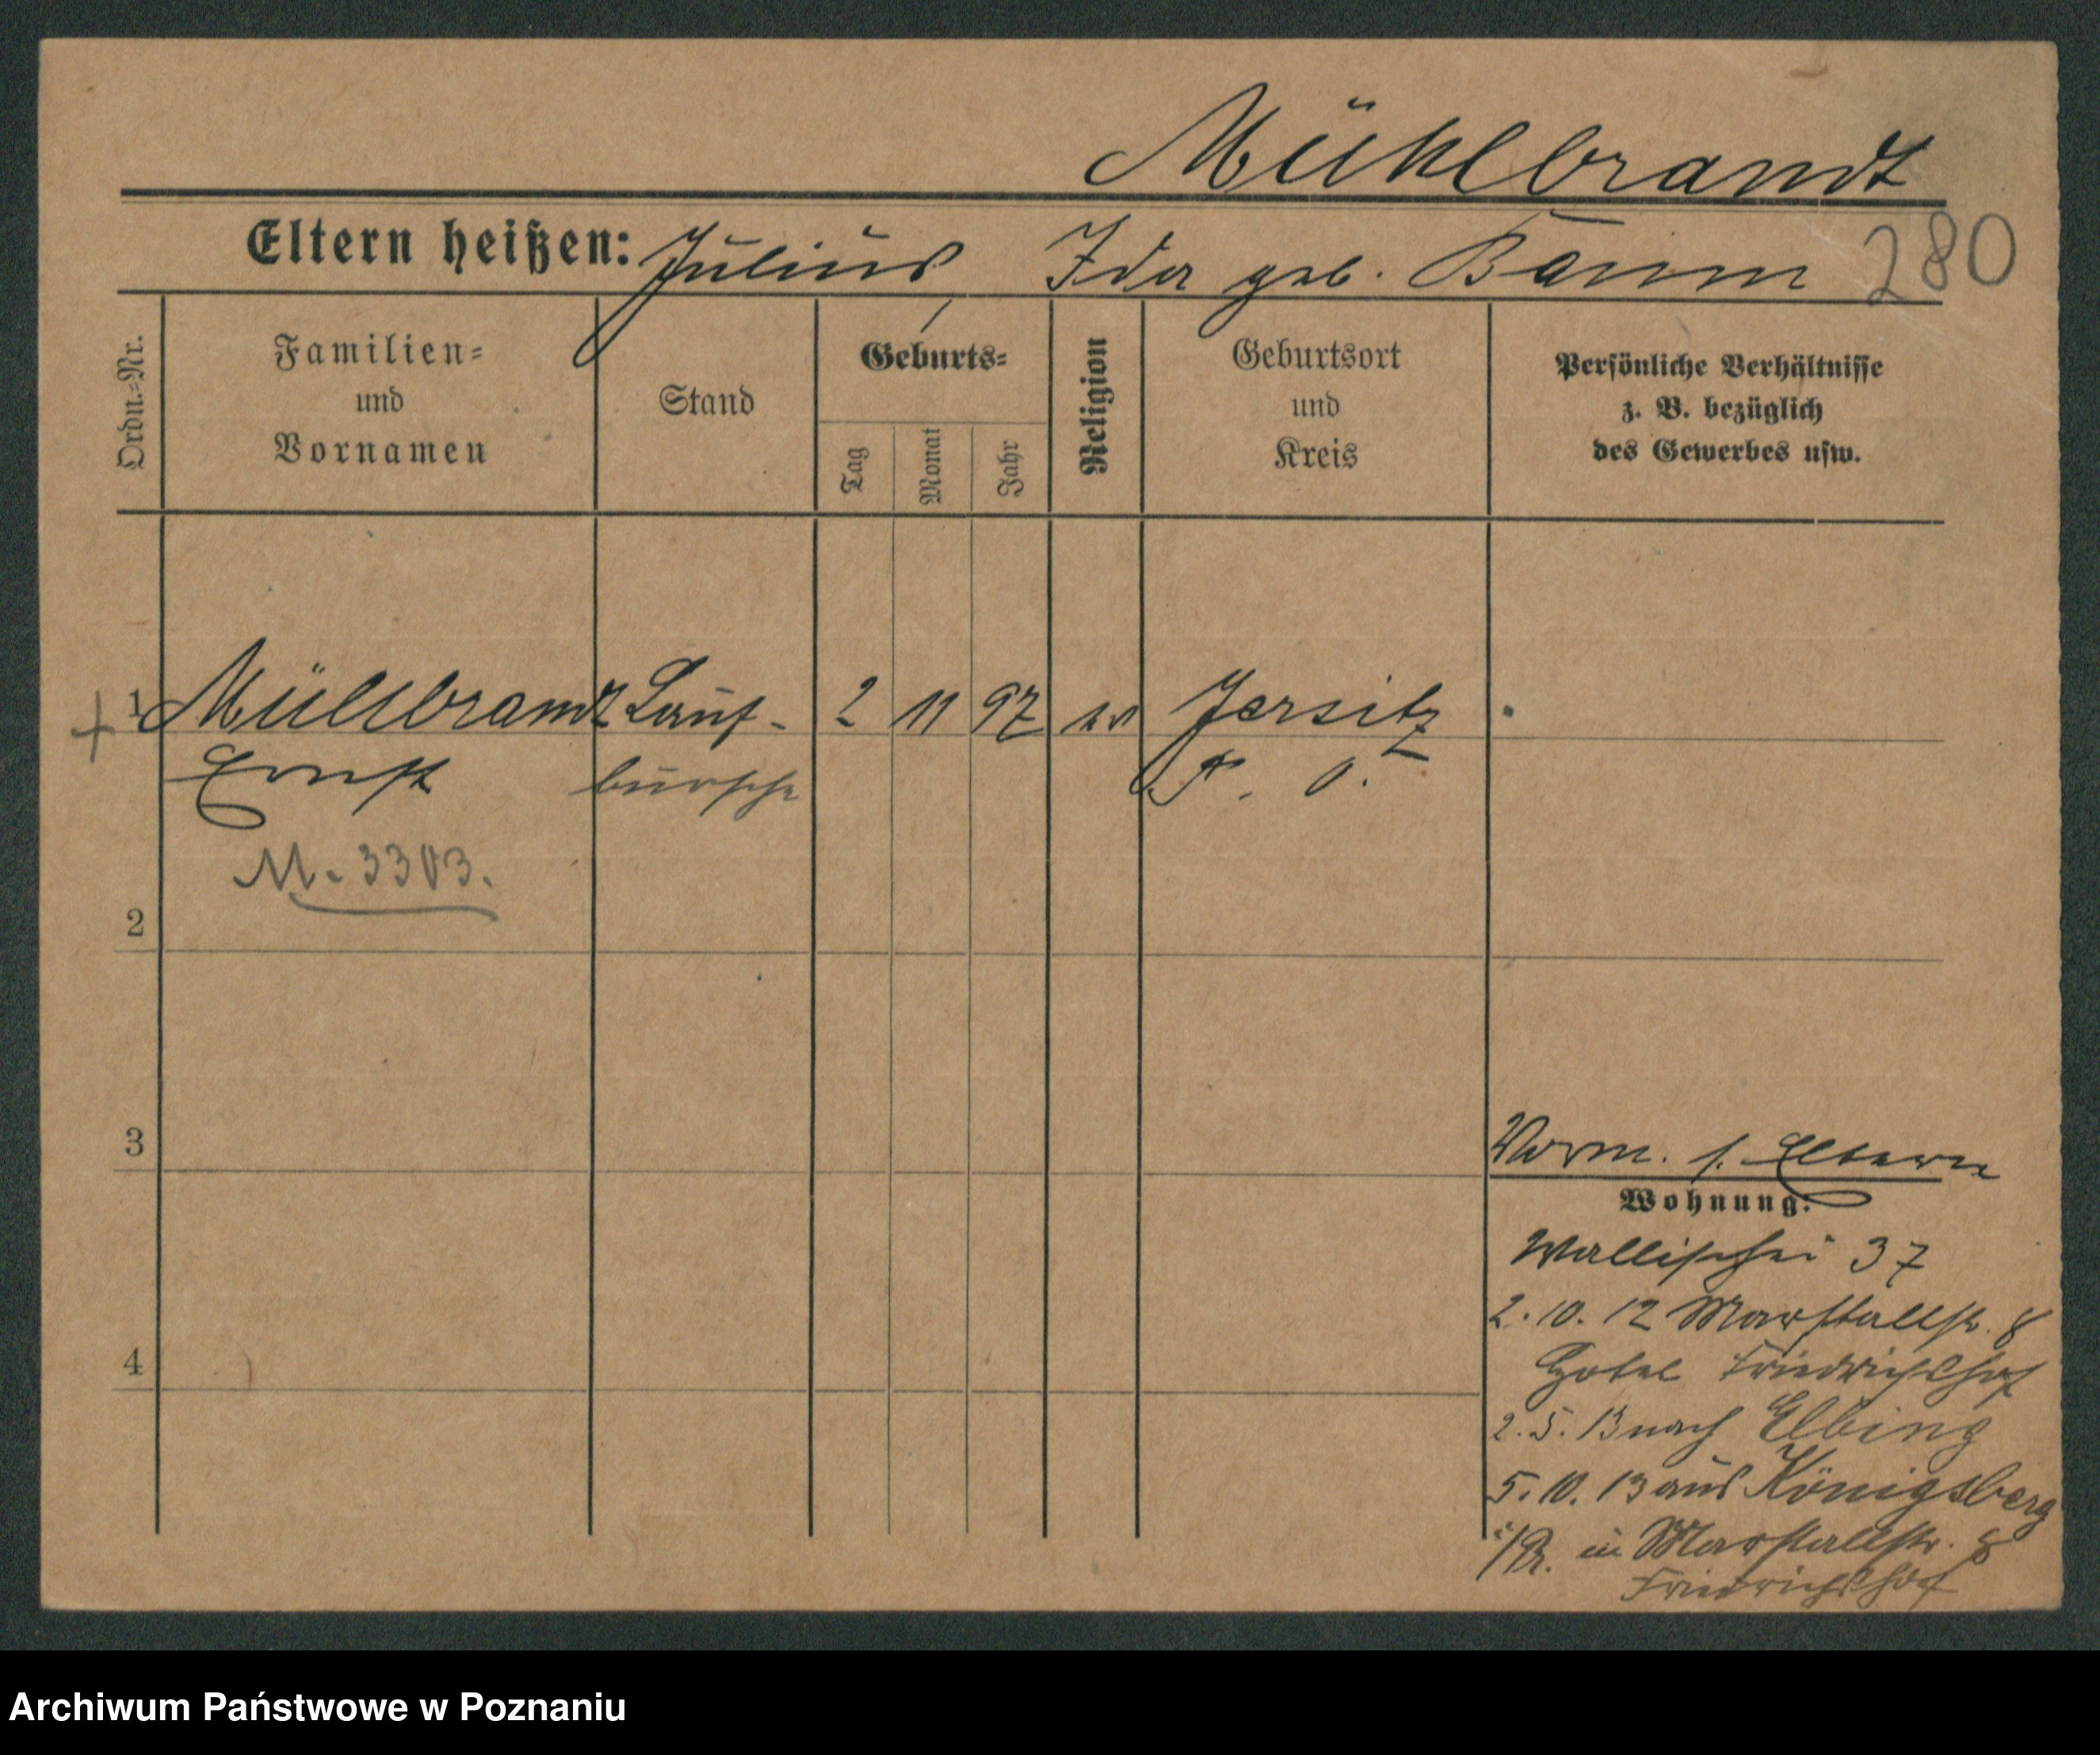 Mühlbrandt
Eltern heißen: Julius Ida geb. Baum
280
Ordn.=Nr.
Familien=
und
Vornamen
Stand
Geburts=
Tag
Monat
Jahr
Religion
Geburtsort
und
Kreis
Persönliche Verhältnisse
z. B. bezüglich
des Gewerbes usw.
+ 1 Mühlbrandt Lauf- 2 11 97 ev Jersitz
Ernst bursche P. O.
M. 3303.
2
3
4
Vorm. s. Eltern
Wohnung:
Wallischei 37
2.10.12 Marstallstr. 8
Hotel Friedrichshof
2.5.13 nach Elbing
5.10.13 aus Königsberg
i/Pr. in Marstallstr. 8
Friedrichshof
Archiwum Państwowe w Poznaniu